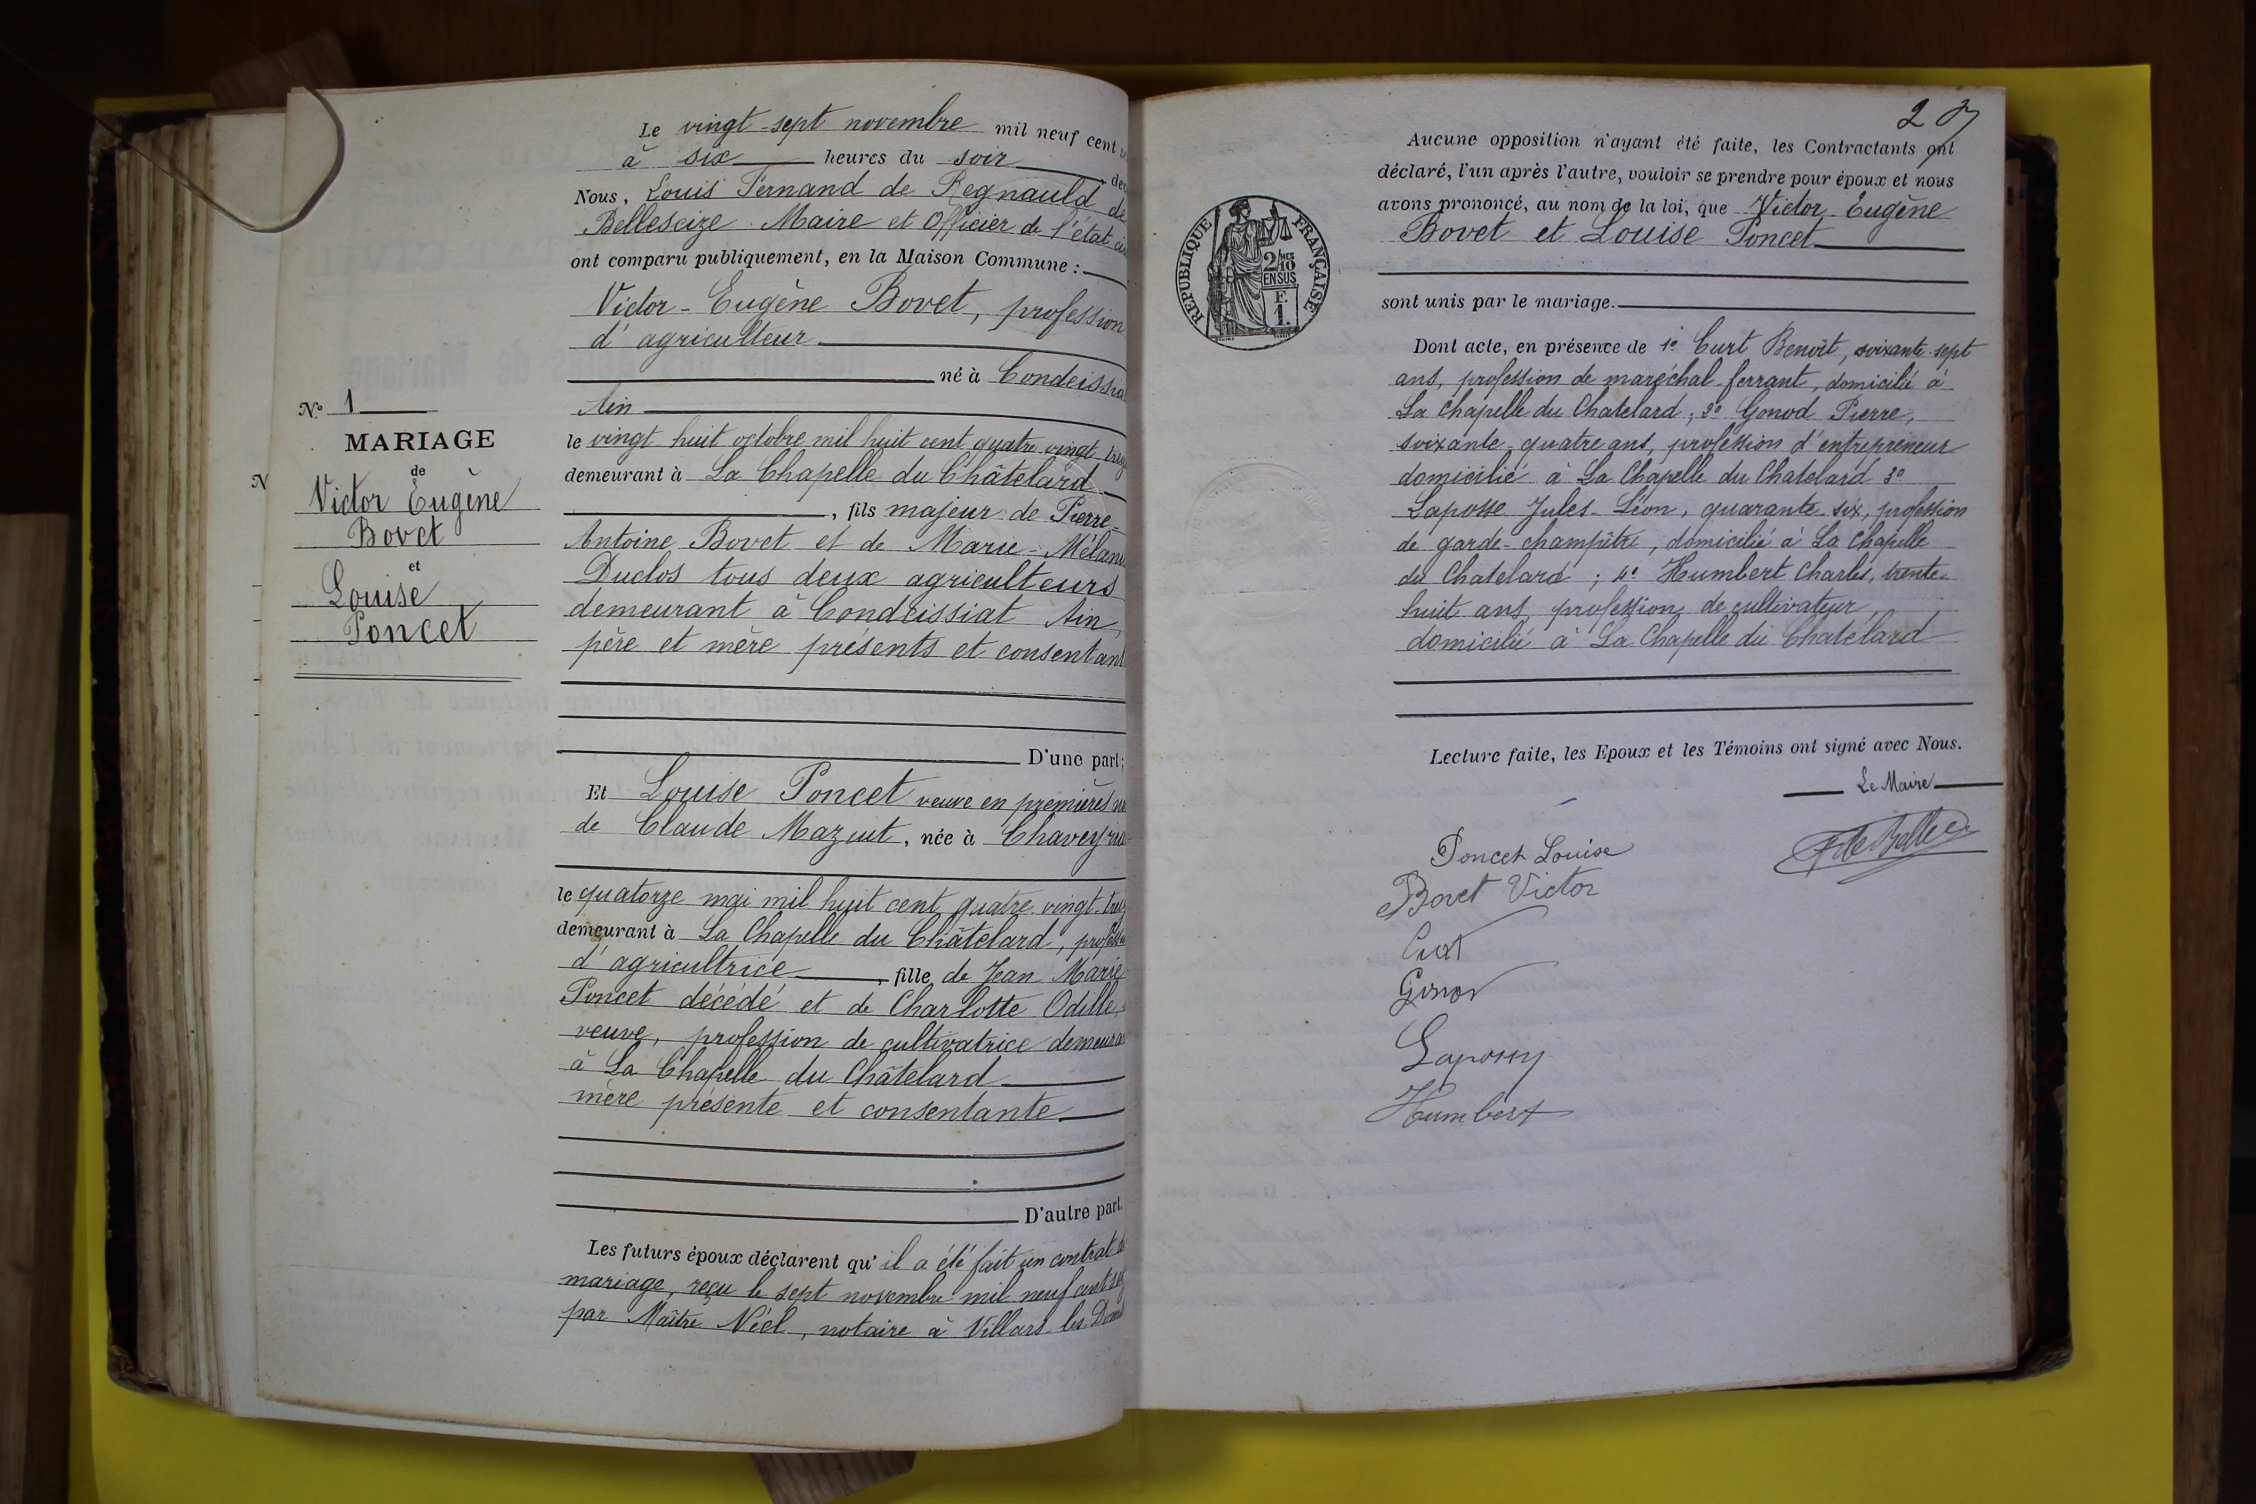 Le vingt-sept novembre mil neuf cent
à six heures du soir
Nous, Louis Fernand de Regnauld de
Belleseize Maire et Officier de l'état
ont comparu publiquement, en la Maison Commune :
Victor-Eugène Bovet, profession
d'agriculteur
né à Condeissia
Ain
N° 1
MARIAGE
de
Victor Eugène
Bovet
et
Louise
Poncet
le vingt huit octobre mil huit cent quatre vingt
demeurant à La Chapelle du Châtelard
, fils majeur de Pierre-
Antoine Bovet et de Marie-Mélanie
Duclos tous deux agriculteurs
demeurant à Condeissiat Ain,
père et mère présents et consentant
D'une part;
Et Louise Poncet veuve en premières
de Claude Mazuit, née à Chaveyria
le quatorze mai mil huit cent quatre vingt
demeurant à La Chapelle du Châtelard, profess
d'agricultrice, fille de Jean Marie
Poncet décédé et de Charlotte Odille,
veuve, profession de cultivatrice demeura
à La Chapelle du Châtelard
mère présente et consentante
D'autre part.
Les futurs époux déclarent qu'il a été fait un contrat de
mariage, reçu le sept novembre mil neuf cent
par Maître Néel, notaire à Villars-les-Dom
Aucune opposition n'ayant été faite, les Contractants ont
déclaré, l'un après l'autre, vouloir se prendre pour époux et nous
avons prononcé, au nom de la loi, que Victor Eugène
Bovet et Louise Poncet
RÉPUBLIQUE FRANÇAISE
2/10 MES
EN SUS
F.
1.
sont unis par le mariage.
Dont acte, en présence de 1° Curt Benoît, soixante-sept
ans, profession de maréchal-ferrant, domicilié à
La Chapelle du Chatelard, 2° Gonod Pierre,
soixante-quatre ans, profession d'entrepreneur
domicilié à La Chapelle du Chatelard 3°
Laposse Jules-Léon, quarante-six, profession
de garde-champêtre, domicilié à La Chapelle
du Chatelard ; 4° Humbert Charles, trente-
huit ans, profession de cultivateur,
domicilié à La Chapelle du Chatelard
Lecture faite, les Epoux et les Témoins ont signé avec Nous.
Le Maire
Poncet Louise
Bovet Victor
Curt
Gonod
Humbert